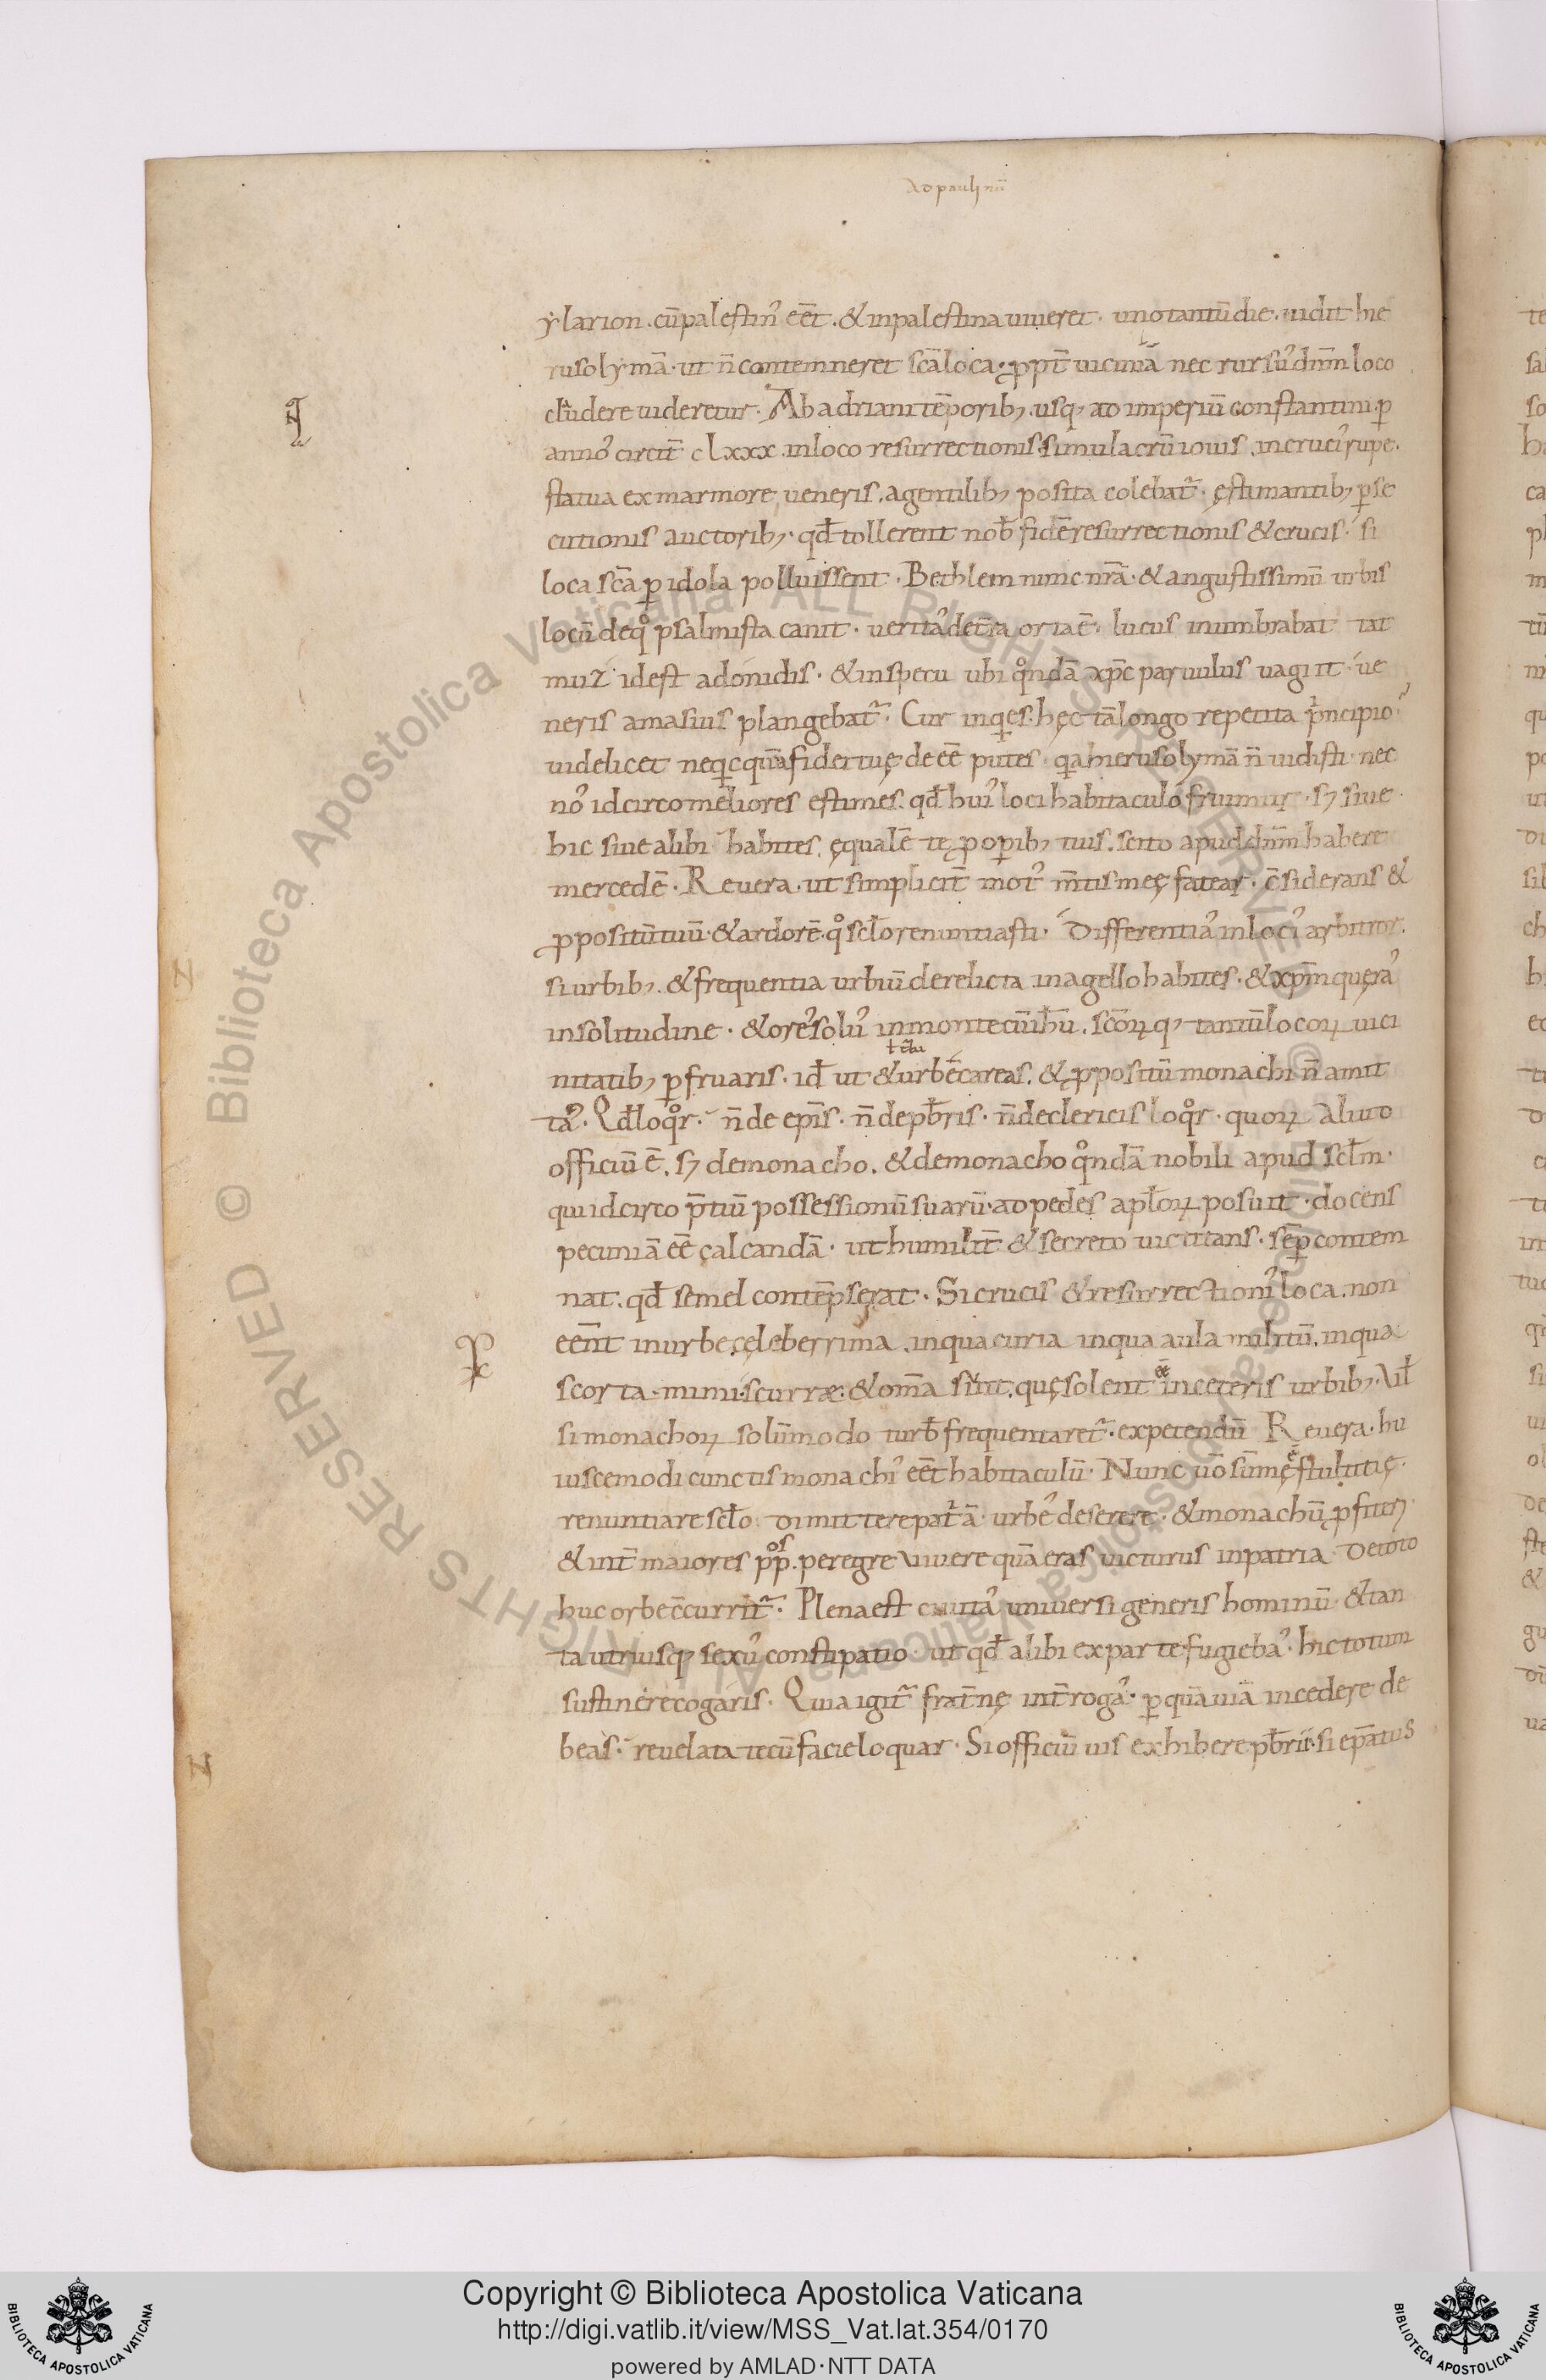 Ad pauli nū
ẏlarion. cū palestin᾽ eēt. & in palestina uiueret. uno tantū die. uidit hie
rusolymā. ut n̄ contemneret scā loca. ꝓpt̄ uicinia nec rursū᾽ dn̄m loco
cludere uideretur. Ab adriani tēporib; usq; ad imperiū constantini ꝑ
anno᾽ circit̄ clxxx. in loco resurrectionis. simulacrū iouis. in cruci᾽ rupe.
statua ex marmore ueneris. a gentilib; posita colebat᷑. ęstimantib; ꝑse
cutionis auctorib;. qđ tollerent nob̄ fidē resurrectionis & crucis. si
loca scā ꝑ idola polluissent. Bethlem nunc nr̄ā. & angustissimū urbis
locū de qͦ psalmista canit. uerita᾽ de t̄ra orta ē. lucus inumbrabat tat
muz. id est adonidis. & in specu ubi qͦndā xp̄c paruulus uagiit. ue
neris amasius plangebat᷑. Cur inqes. hęc tā longo repetita pͥncipio.
uidelicet neqͥcquā fidei tuę deeē putes. qͣ hierusolymā n̄ uidisti. nec
no᾽ idcirco meliores estimes. qđ hui᾽ loci habitaculo fruimur. sꝫ siue
hic siue alibi habites. ęqualē te ꝓ oꝑib; tuis. scito apud dn̄m habere
mercedē. Reuera. ut simplicit̄ mot᾽ m̄tis meę fatear. c̄siderans &
ꝓpositū tuū. & ardorē. qͦ sclo renuntiasti. Differentia᾽ in loci᾽ arbitror.
si urbib;. & frequentia urbiū derelicta in agello habites. & xp̄m quęra᾽
in solitudine. & ore᾽ solu᾽ in monte cū ih̄u. scōꝝq; tantū locoꝝ uici
nitatib; ꝑfruaris. id̄ ut & urbē careas. & ꝓpositū monachi n̄ amit
ta᾽. Qđ loqͦr. n̄ de ep̄is. n̄ de pb̄ris. n̄ de clericis loqͦr. quoꝝ aliud
officiū ē. sꝫ de monacho. & de monacho qͦndā nobili apud sclm.
qui idcirco p̄tiū possessionū suarū. ad pedes aplōꝝ posuit. docens
pecuniā eē calcandā. ut humilit̄ & secreto uictitans. sēꝑ contem
nat. qđ semel contēpserat. Si crucis & resurrectioni᾽ loca. non
eēnt in urbe celeberrima. in qua curia in qua aula militū. in qua
scorta. mimi. scurræ. & om̄a sūnt. quę solent eē in ceteris urbib;. Vel
si monachoꝝ solūmodo turb̄ frequentaret᷑. expetendū Reuera. hu
iuscemodi cunctis monachi᾽ eēt habitaculū. Nunc uō sūmę ē stultitię.
renuntiare sclo. dimittere patͥā. urbe᾽ deserere. & monachū ꝓfiteri
& int̄ maiores pp̄los. peregre uiuere quā eras uicturus in patria. De toto
huc orbe c̄currit᷑. Plena est cuita᾽ uniuersi generis hominū. & tan
ta utriusq; sexu᾽ constipatio. ut qđ alibi ex parte fugieba᾽. hic totum
sustinere cogaris. Quia igit᷑ frat̄nę int̄roga᾽. ꝑ quā uiā incedere de
beas. reuelata tecū facie loquar. Si officiū uis exhibere pb̄rii. si ep̄atus
Copyright © Biblioteca Apostolica Vaticana
http://digi.vatlib.it/view/MSS_Vat.lat.354/0170
powered by AMLAD·NTT DATA